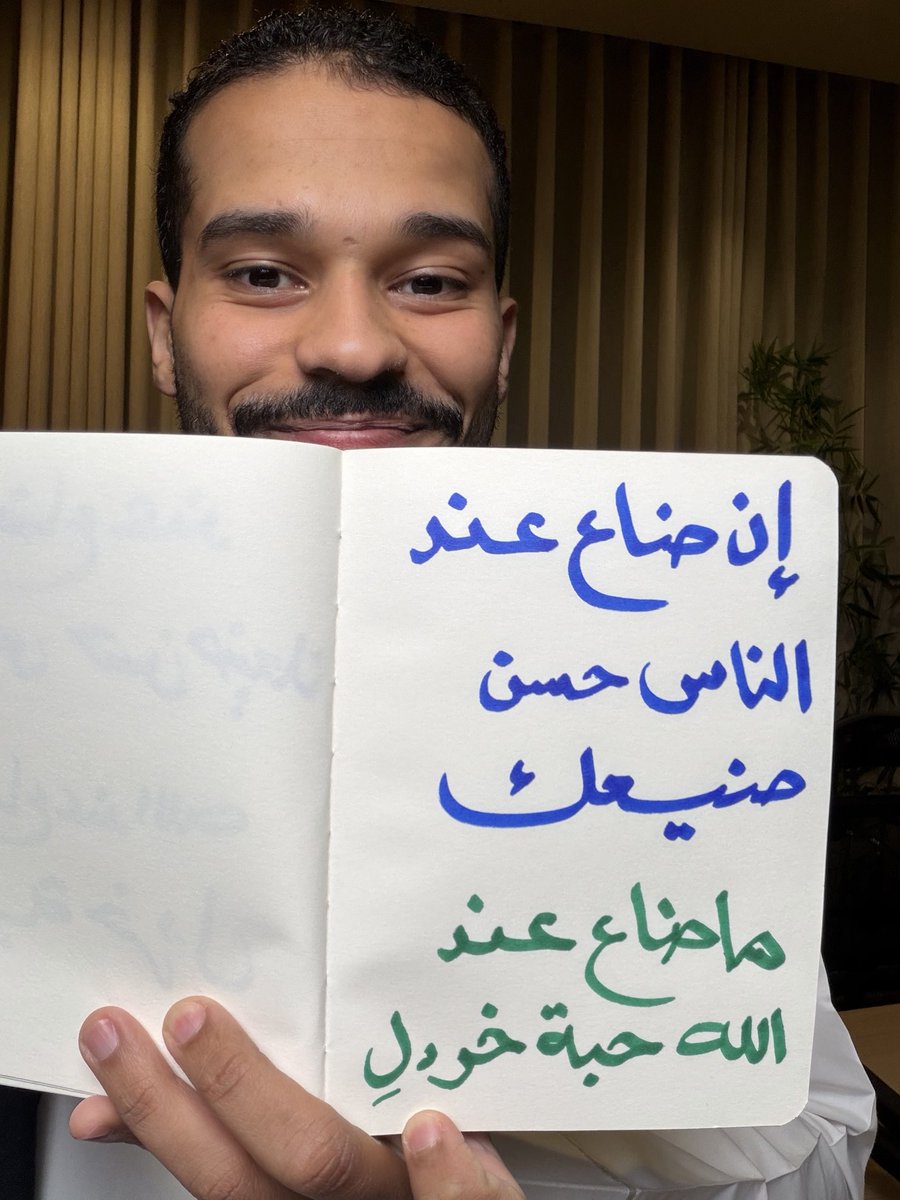 إن ضاع عند
الناس حسن
صنيعك
ما ضاع عند
الله حبة خردلِ